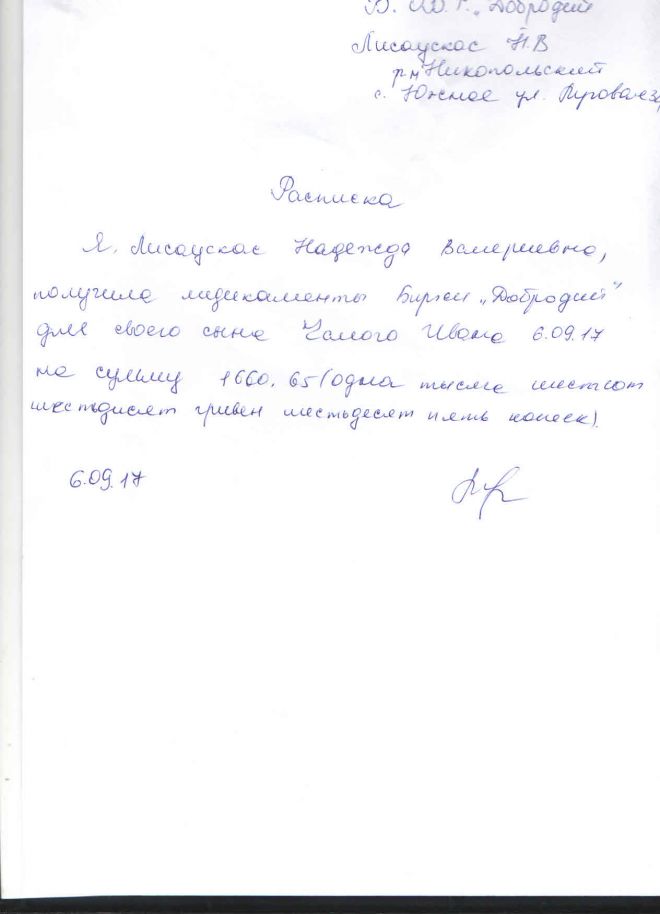 "Добродий"
Лисаускас Н.В
р-н Никопольский
с. Южное ул.
Расписка
Я. Лисаускас Надежда Валериевна,
получила медикаменты Биржи "Добродий"
для своего сына Чалого Ивана 6.09.17
на сумму 1660.65 (одна тысяча шестьсот
шестьдисят гривен шестьдесят пять копеек).
6.09.17